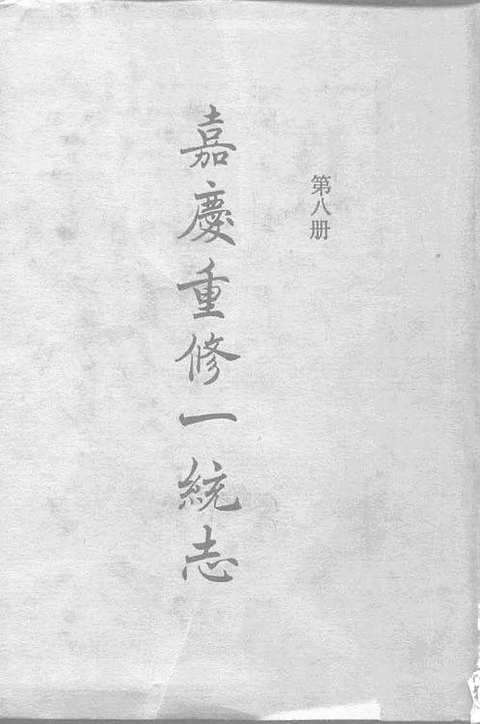 第八册
嘉慶重修一統志